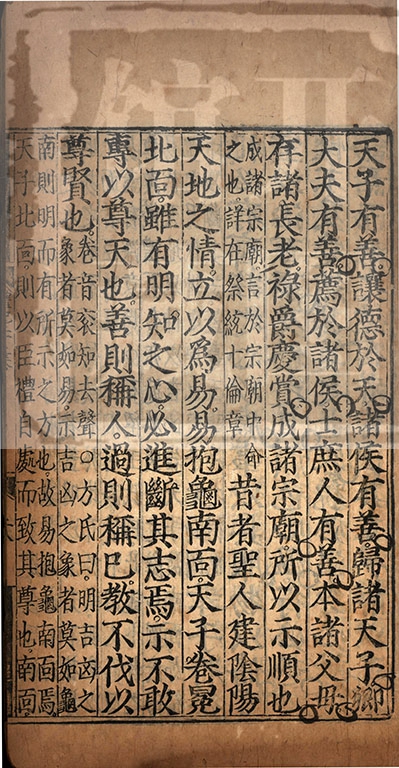 天子有善讓德於天諸侯有善歸諸天子卿
大夫有善薦於諸侯士庶人有善本諸父母
存諸長老。祿爵慶賞成諸宗廟。所以示順也
成諸宗廟言於宗廟中命
之也詳在祭統十倫章
昔者聖人建陰陽
天地之情。立以爲易。易抱龜南靣。天子卷冕
北靣。雖有明知之心。必進斷其志焉。示不敢
專。以尊天也。善則稱人。過則稱已。教不伐以
尊賢也。
卷音衮知去聲○方氏曰。明吉凶之
象者莫如易。示吉凶之象者莫如龜
南則明而有所示之方也故易抱龜南靣焉。
天子北靣則以臣禮自處而致其尊也。南靣。